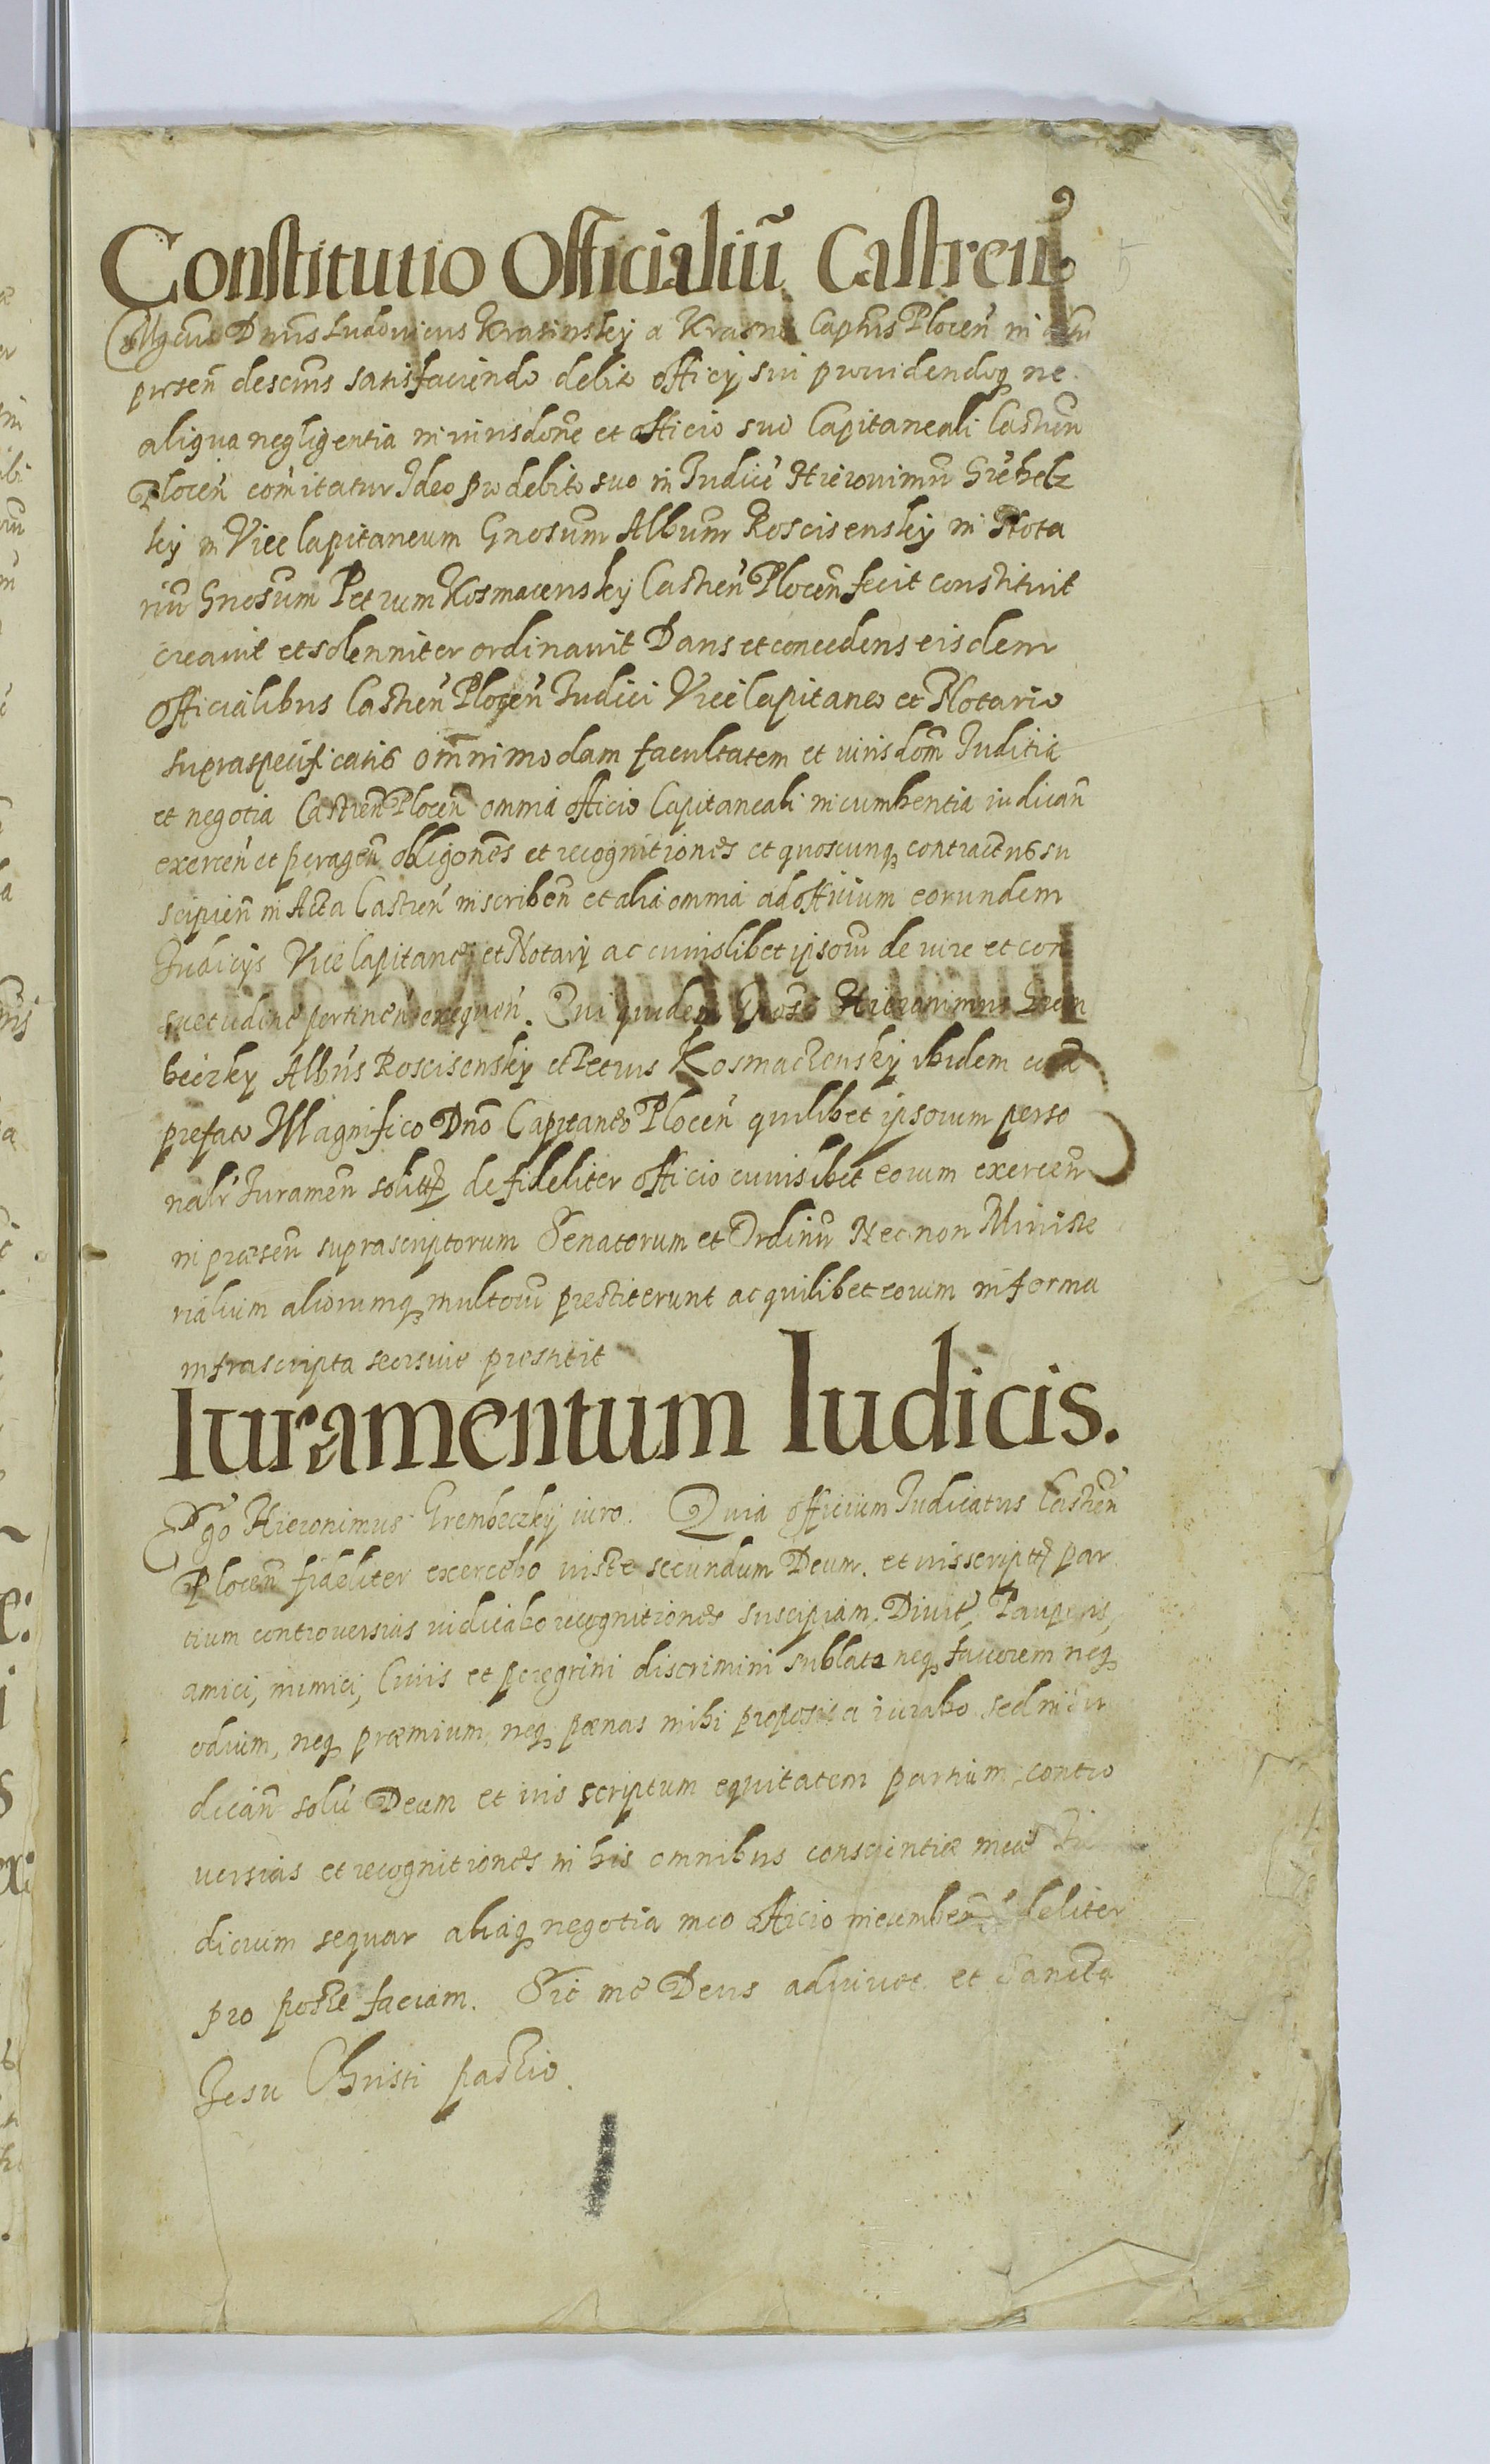 Constitutio Officialiũ Castren
Mgcus Dnus Ludovicus Krasinskÿ a Krasne Captus Plocen̄ in
presen̄ descens satisfaciendo debito officÿ sui providendoq ne
aliqua negligentia in iurisdone et officio suo Capitaneali Castren
Plocen̄ comitatur Ideo pro debito suo in Iudice Hieronimũ Grebelz
kÿ in Vice Capitaneum Gnosum Album Roscisenskÿ in Nota
riũ Gnosum Petrum Kosmacenskÿ Castren̄ Plocen̄ fecit constituit
creauit et solenniter ordinauit Dans et concedens eisdem
Officialibus Castren̄ Plocen̄ Iudici Vice Capitaneo et Notario
supraspecificatis omnimodam facultatem et iurisdom̄ Iuditia
et negotia Castren̄ Plocen̄ omnia officio Capitaneali incumbentia iudican̄
exercen̄ et peragen̄ obligones et recognitiones et quoscunq contractus su
scipien̄ in Acta Castren̄ inscriben̄ et alia omnia ad officium eorundem
Iudicÿs Vice Capitanei et Notarÿ ac cuiuslibet ipsorũ de iure et con
suetudine pertinen̄ exequen̄. Qui quidem Gnosi Hieronimus Grem
beczkÿ Albus Roscisenskÿ et Petrus Kosmaczenskÿ ibidem coram
prefato Magnifico Dno Capitaneo Plocen̄ quilibet ipsorum perso
nalr Iuramen̄ solitũ de fideliter officio cuiuslibet eorum exercen̄
in præsen̄ suprascriptorum Senatorum et Ordinũ Necnon Ministe
rialium aliorumq multorũ prestiterunt ac quilibet eorum in forma
infrascripta seorsive prestitit
Iuramentum Iudicis.
Ego Hieronimus Grembeczkÿ iuro. Quia officium Iudicatus Castren̄
Plocen̄ fideliter exercebo iuste secundum Deum. et ius scriptũ par
tium controversias iudicabo recognitiones suscipiam, Divitẽ, Pauperis,
amici, inimici, Civis et peregrini discrimini sublato neq favorem neq
odium, neq præmium, neq pœnas mihi proposita curabo sed in iu
dican̄ solũ Deum et ius scriptum equitatem partium contro
versias et recognitiones in his omnibus conscientiæ meæ Iu
dicium sequar aliaq negotia meo officio incumben̄ fideliter
pro posse faciam. Sic me Deus adiuvet et Sancta
Jesu Christi passio.